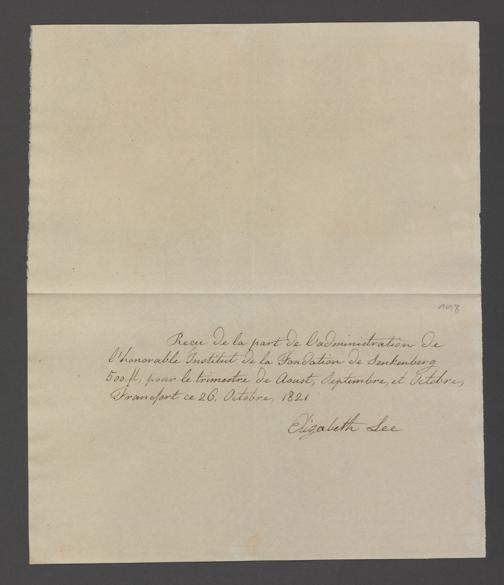 1418
Recu de la part de l'administration de
l'honorable Institut de la Fondation de Senkenberg
500 fl, pour le trimestre de Aoust, Septembre, et Octobre,
Francfort ce 26. Octobre, 1821
Elizabeth Lee